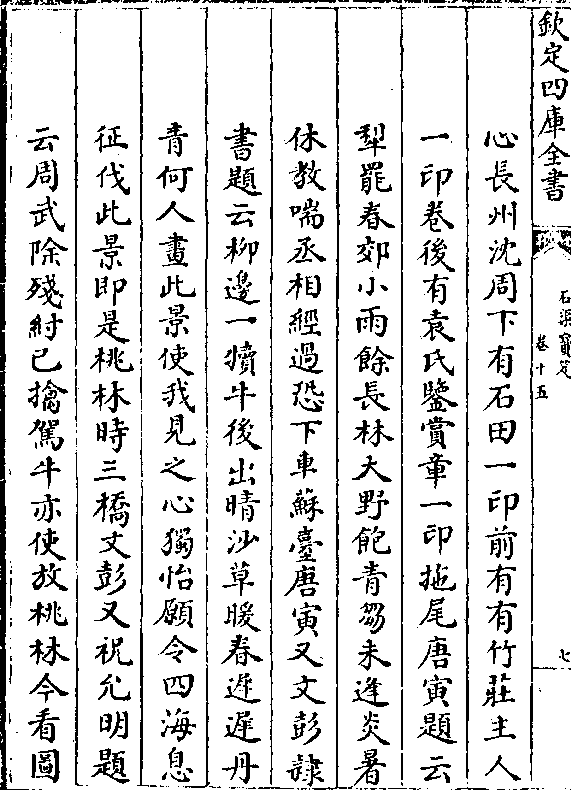 欽定四庫全書
石渠寳笈
卷十五
七
心長州沈周下有石田一印前有有竹莊主人
一印卷後有袁氏鑒賞章一印拖尾唐寅題云
犁罷春郊小雨餘長林大野飽青芻未逢炎暑
休教喘丞相經過恐下車蘇臺唐寅又文彭隸
書題云柳邊一犢牛後出晴沙草暖春遲遲丹
青何人畫此景使我見之心獨怡願令四海息
征伐此景即是桃林時三橋文彭又祝允明題
云周武除殘紂已擒駕牛亦使放桃林今看圖